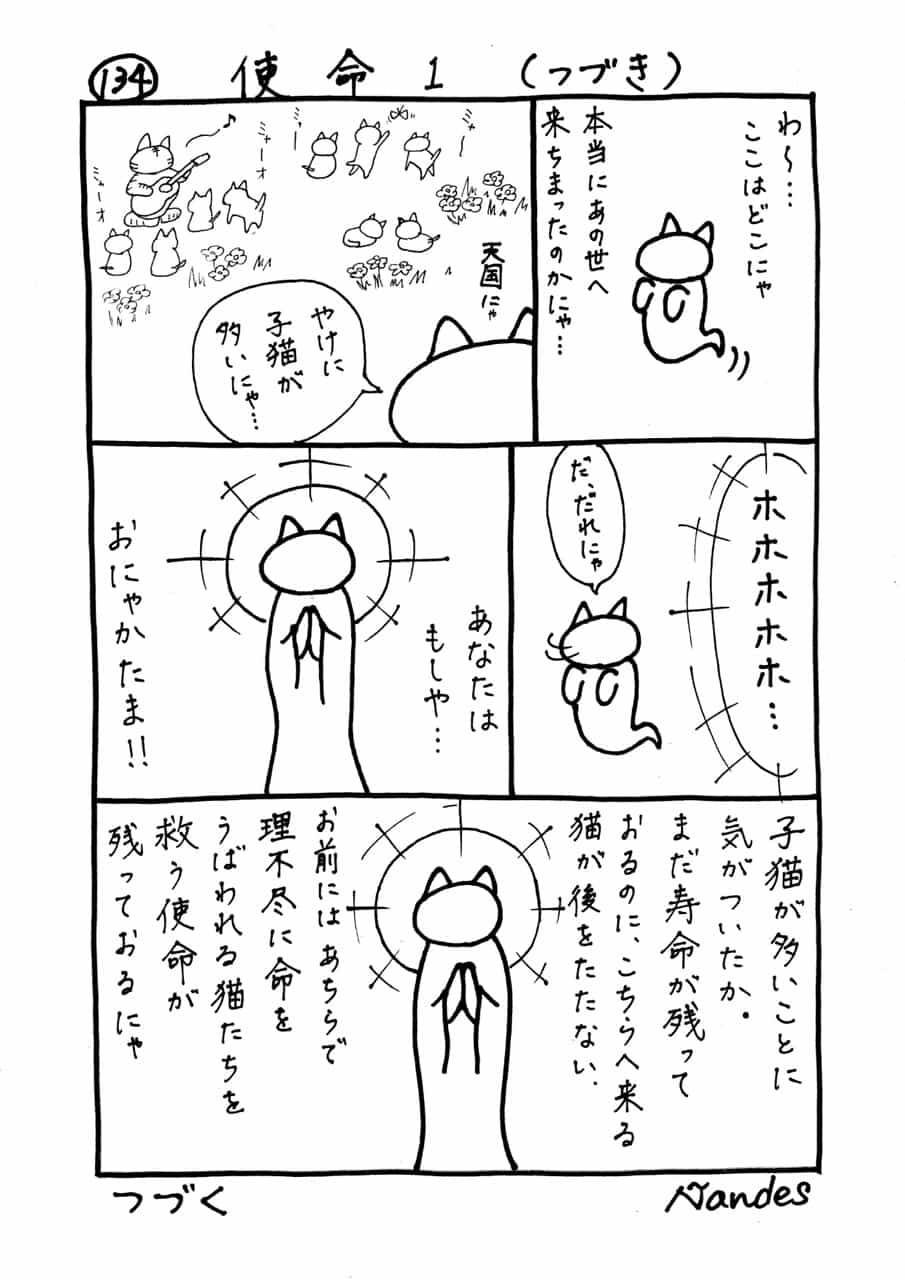 134 使命1 (つづき)
わ～…
ここはどこにゃ
本当にあの世へ
来ちまったのかにゃ…
♪
ミャーオ
ミャーオ
ミャー
ミャ～
天国にゃ
やけに
子猫が
多いにゃ…
ホホホホホ…
だ、だれにゃ
あなたは
もしや…
おにゃかたま!!
子猫が多いことに
気がついたか.
まだ寿命が残って
おるのに、こちらへ来る
猫が後をたたない.
お前にはあちらで
理不尽に命を
うばわれる猫たちを
救う使命が
残っておるにゃ
つづく